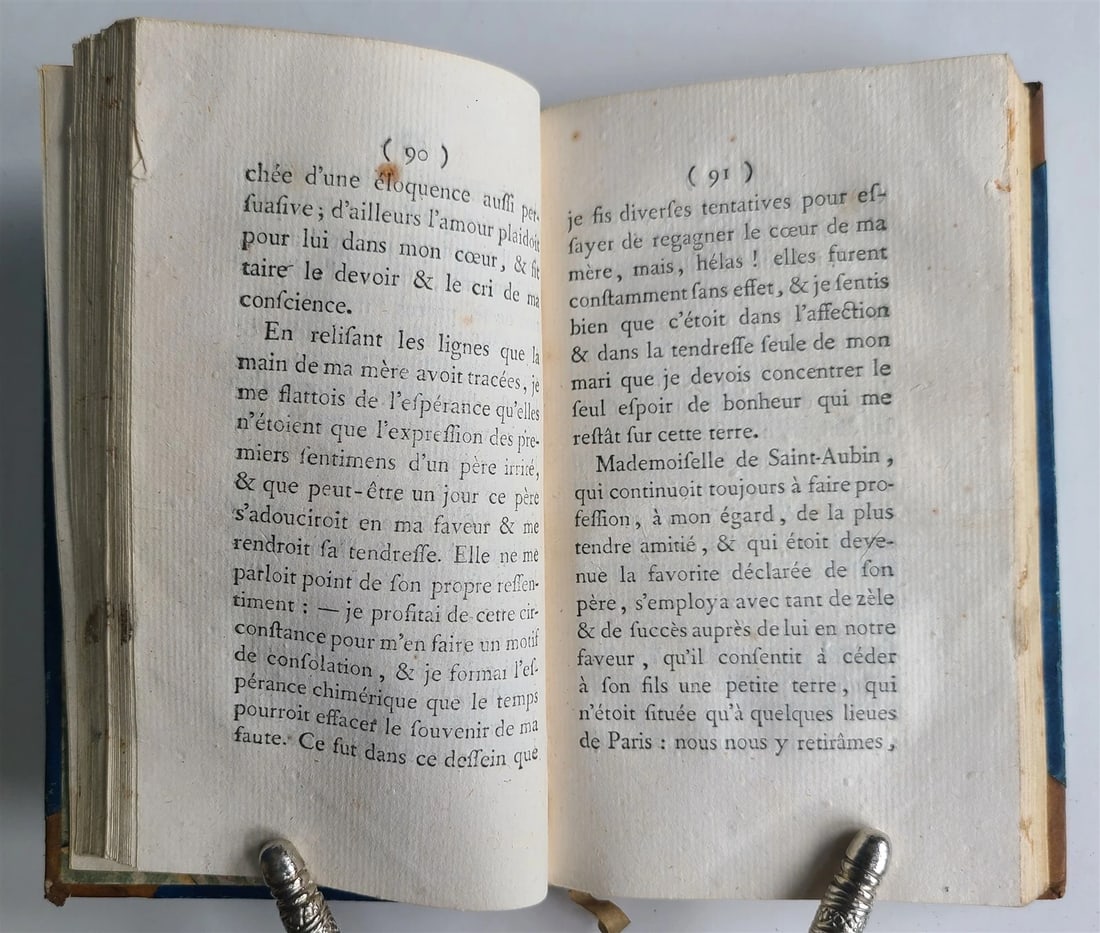 ( 90 )
chée d'une éloquence auſſi per-
ſuaſive ; d'ailleurs l'amour plaidoit
pour lui dans mon cœur, & fit
taire le devoir & le cri de ma
conſcience.
En reliſant les lignes que la
main de ma mère avoit tracées, je
me flattois de l'eſpérance qu'elles
n'étoient que l'expreſſion des pre-
miers ſentimens d'un père irrité,
& que peut-être un jour ce père
s'adouciroit en ma faveur & me
rendroit ſa tendreſſe. Elle ne me
parloit point de ſon propre reſſen-
timent : — je profitai de cette cir-
conſtance pour m'en faire un motif
de conſolation, & je formai l'eſ-
pérance chimérique que le temps
pourroit effacer le ſouvenir de ma
faute. Ce fut dans ce deſſein que
( 91 )
je fis diverſes tentatives pour eſ-
ſayer de regagner le cœur de ma
mère, mais, hélas ! elles furent
conſtamment ſans effet, & je ſentis
bien que c'étoit dans l'affection
& dans la tendreſſe ſeule de mon
mari que je devois concentrer le
ſeul eſpoir de bonheur qui me
reſtât ſur cette terre.
Mademoiſelle de Saint-Aubin,
qui continuoit toujours à faire pro-
feſſion, à mon égard, de la plus
tendre amitié, & qui étoit deve-
nue la favorite déclarée de ſon
père, s'employa avec tant de zèle
& de ſuccès auprès de lui en notre
faveur, qu'il conſentit à céder
à ſon fils une petite terre, qui
n'étoit ſituée qu'à quelques lieues
de Paris : nous nous y retirâmes,